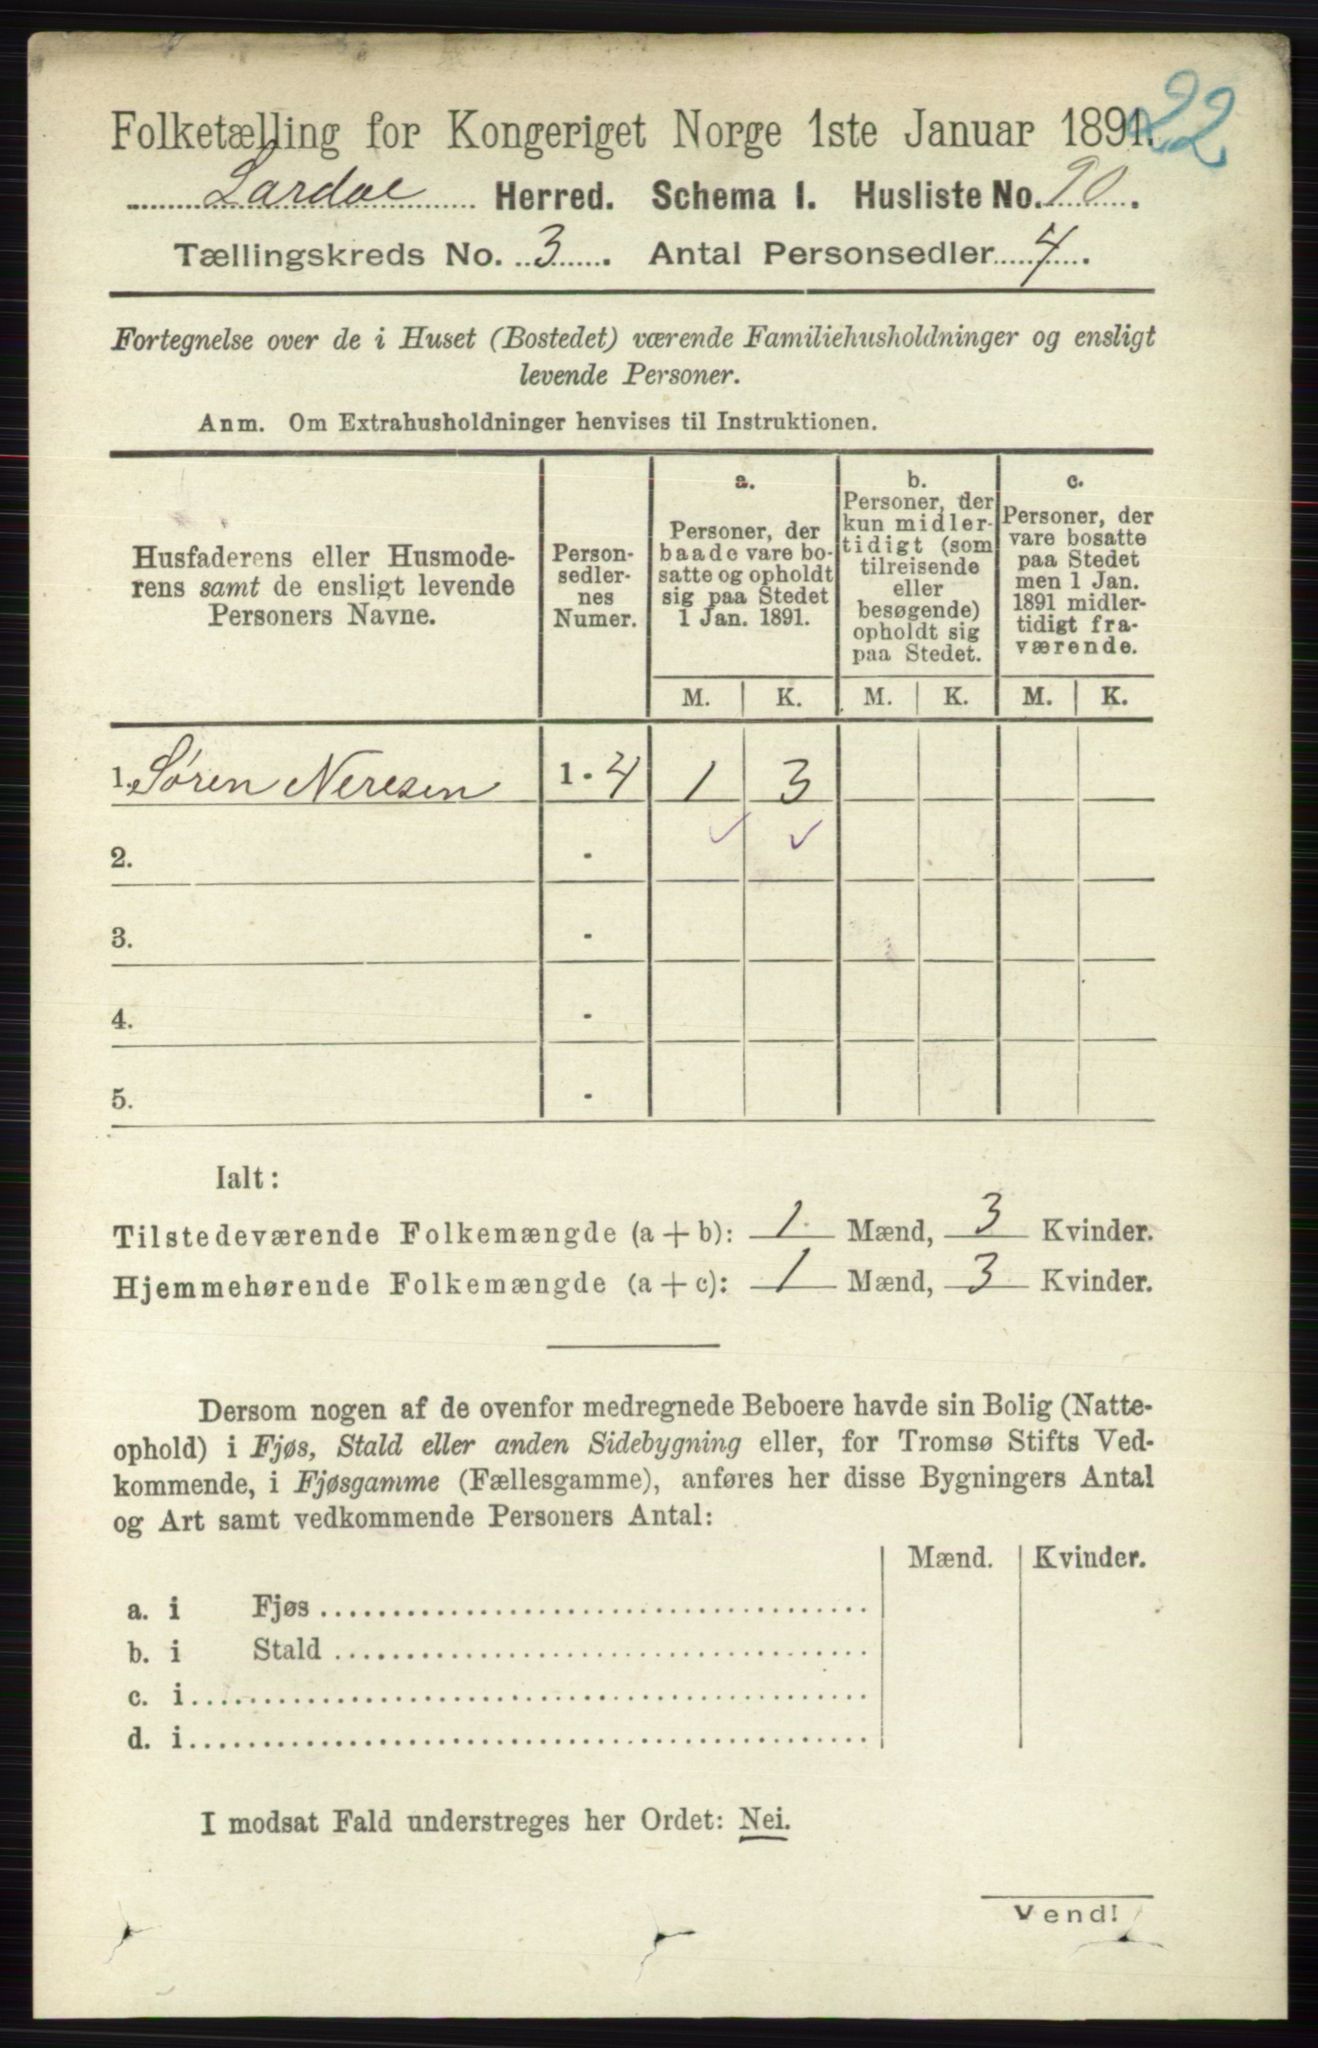 22
Folketælling for Kongeriget Norge 1ste Januar 1891.
Lardal Herred. Schema I. Husliste No. 90.
Tællingskreds No. 3. Antal Personsedler 4.
Fortegnelse over de i Huset (Bostedet) værende Familiehusholdninger og ensligt
levende Personer.
Anm. Om Extrahusholdninger henvises til Instruktionen.
Husfaderens eller Husmode-
rens samt de ensligt levende
Personers Navne.
Person-
sedler-
nes
Numer.
a.
Personer, der
baade vare bo-
satte og opholdt
sig paa Stedet
1 Jan. 1891.
b.
Personer, der
kun midler-
tidigt (som
tilreisende
eller
besøgende)
opholdt sig
paa Stedet.
c.
Personer, der
vare bosatte
paa Stedet
men 1 Jan.
1891 midler-
tidigt fra-
værende.
M. K. M. K. M. K.
1. Søren Neresen 1 - 4 1 3
2. -
3. -
4. -
5. -
Ialt:
Tilstedeværende Folkemængde (a + b): 1 Mænd, 3 Kvinder.
Hjemmehørende Folkemængde (a + c): 1 Mænd, 3 Kvinder.
Dersom nogen af de ovenfor medregnede Beboere havde sin Bolig (Natte-
ophold) i Fjøs, Stald eller anden Sidebygning eller, for Tromsø Stifts Ved-
kommende, i Fjøsgamme (Fællesgamme), anføres her disse Bygningers Antal
og Art samt vedkommende Personers Antal:
Mænd. Kvinder.
a. i Fjøs
b. i Stald
c. i
d. i
I modsat Fald understreges her Ordet: Nei.
Vend!